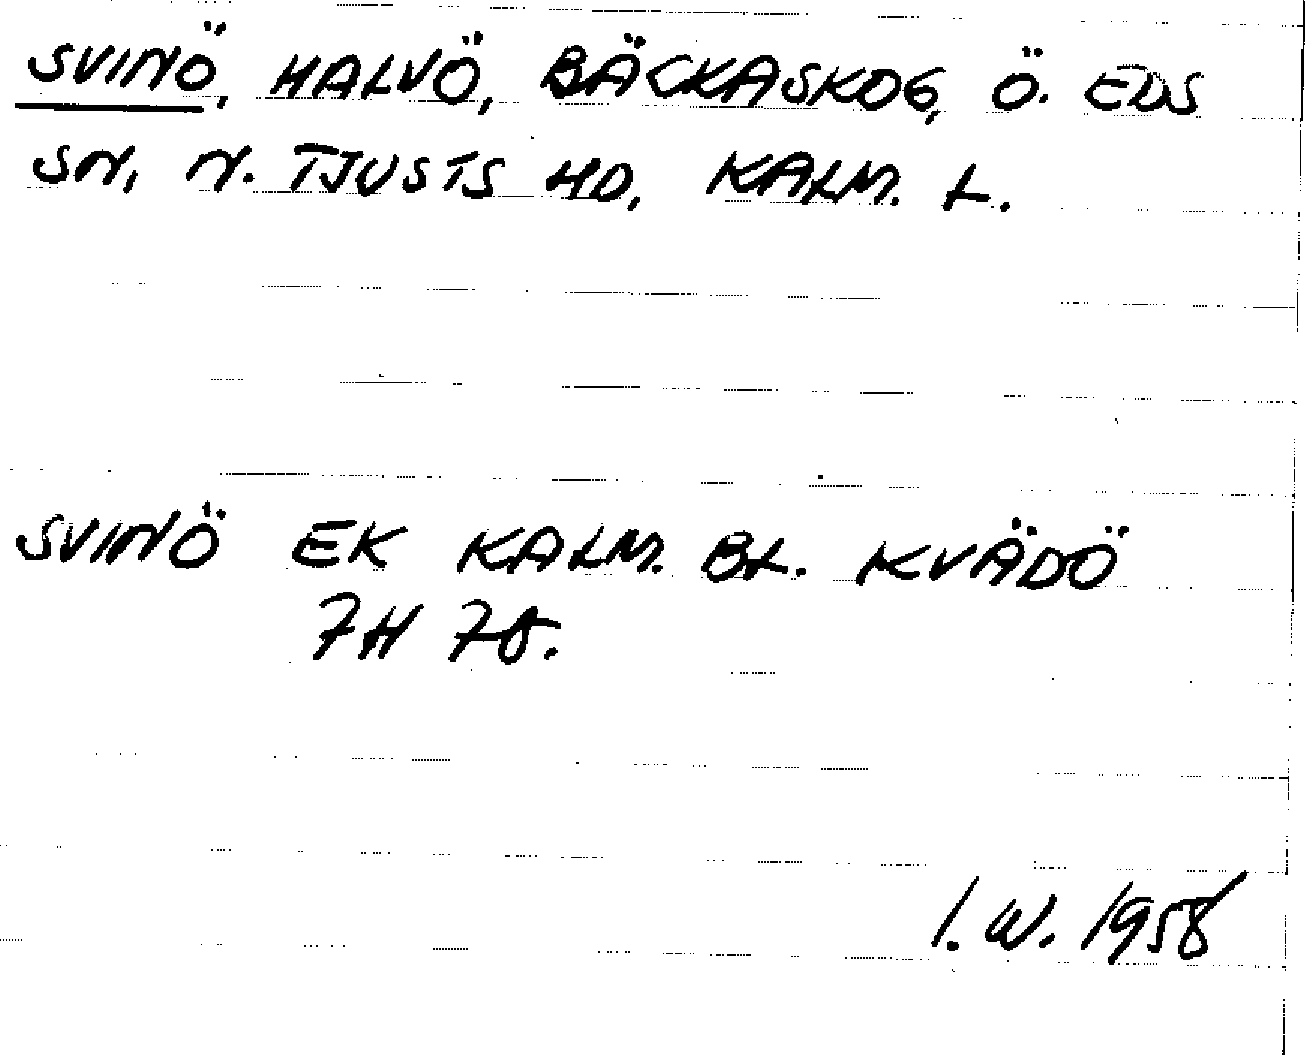 SVINÖ, HALVÖ, BÄCKASKOG, Ö. EDS
SN, N. TJUSTS HD, KALM. L.
SVINÖ EK KALM. BL. KVÄDÖ
7H 78.
I. W. 1958